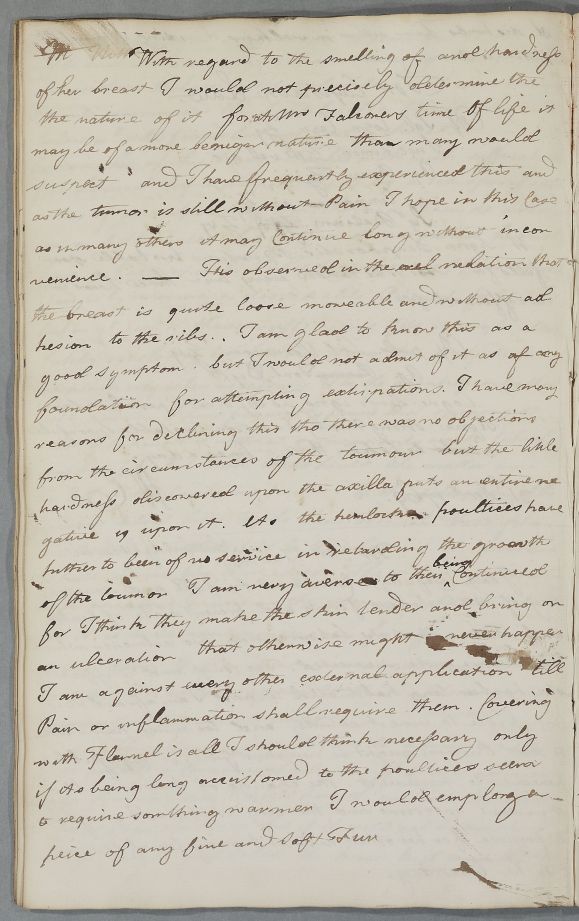 With regard to the smelling of and hardness
of her breast I would not precisely determine the
the nature of it for at Mrs Falconers time of life it
may be of a more benign nature than many would
suspect and I have frequently experienced this and
as the tumor is still without Pain I hope in this Case
as in many others it may Continue long without incon
venience. — Tis observed in the relation that
the breast is quite loose moveable and without ad
hesion to the ribs.. I am glad to know this as a
good symptom. but I would not admit of it as of any
foundation for attempting extirpations. I have many
reasons for declining this tho there was no objections
from the circumstances of the toumour but the little
hardness discovered upon the axilla puts an entire ne
gative upon it. As the hemlock poultices have
hitherto been of no service in retarding the growth
of the toumor I am very averse to their being Continued
for I think they make the skin tender and bring on
an ulceration that otherwise might never happen
I am against every other external application till
Pain or inflammation shall require them. Covering
with Flannel is all I should think necessary only
if As being long accustomed to the poultices seem
to require somthing warmer I would employ a
peice of any fine and soft Fur